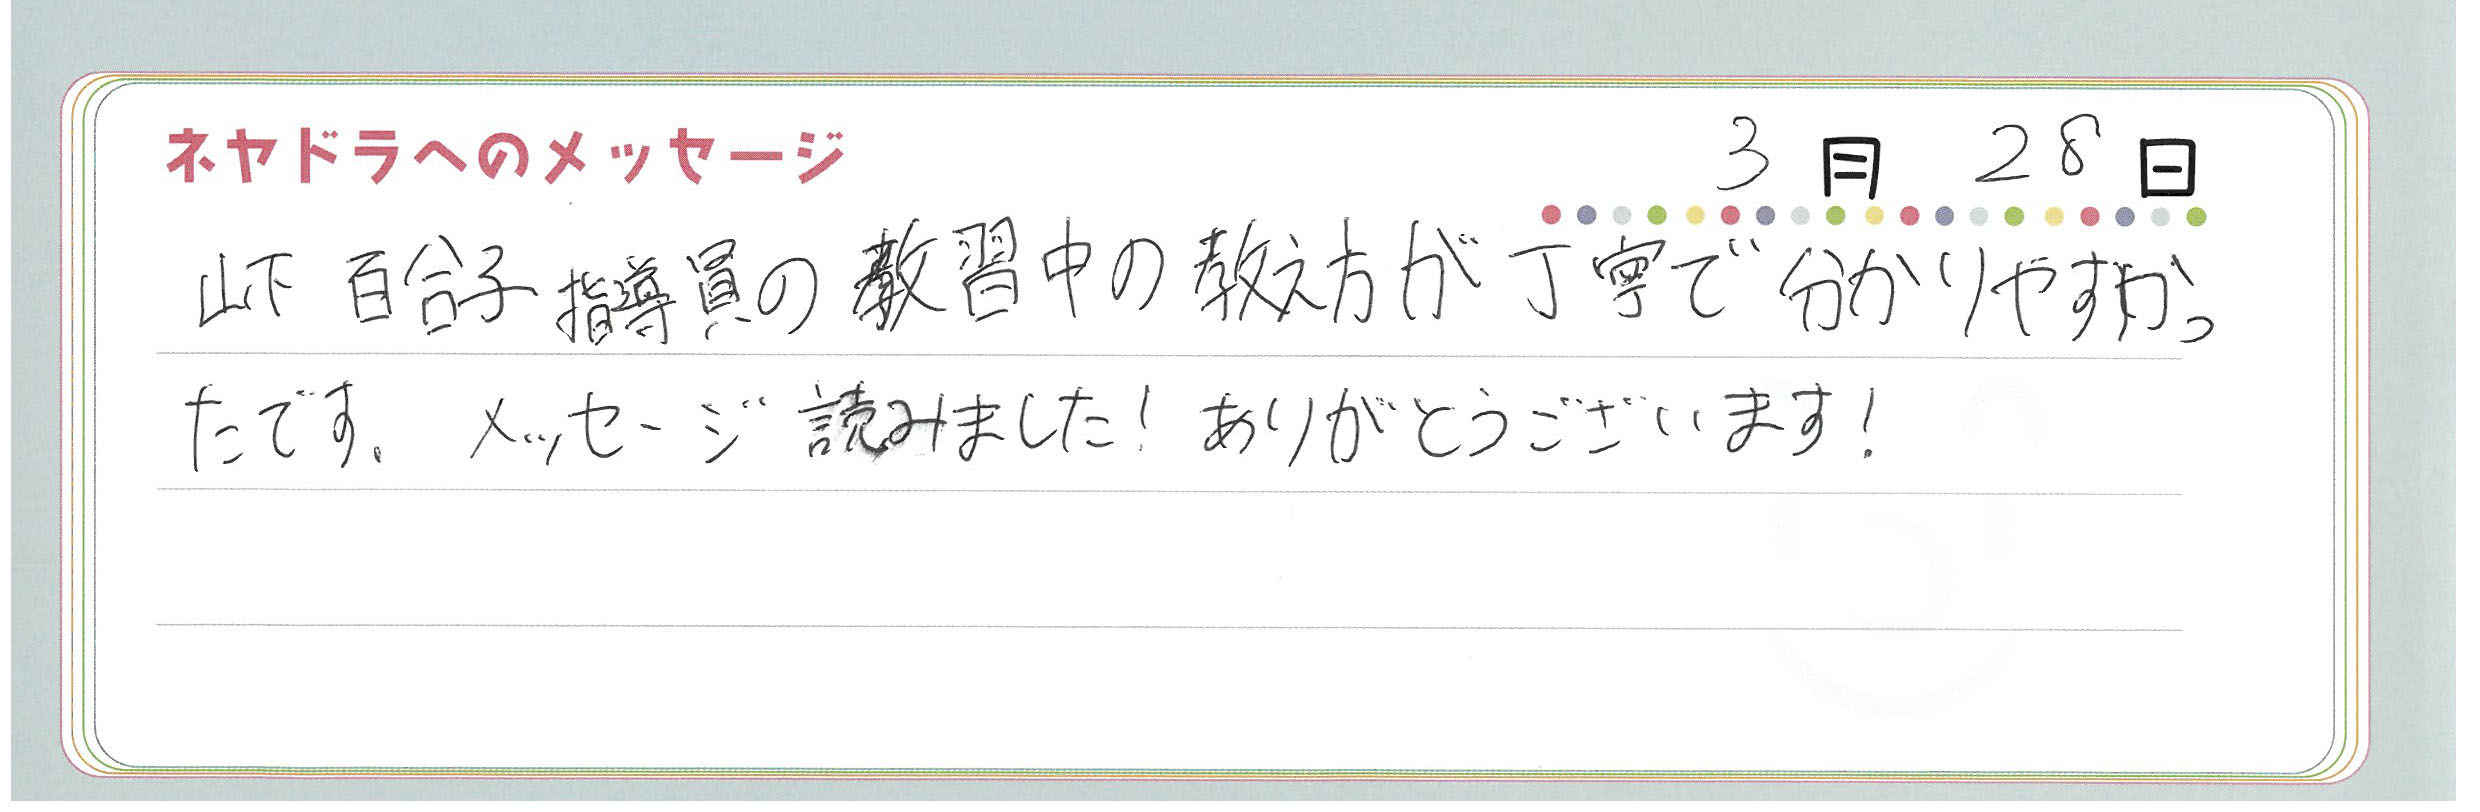 ネヤドラへのメッセージ
3月 28日
山下 百合子指導員の教習中の教え方が丁寧で分かりやすかっ
たです。 メッセージ読みました！ありがとうございます！